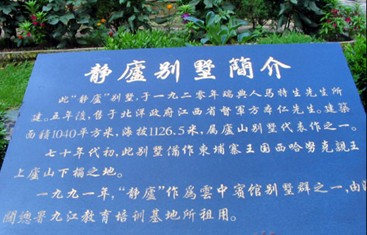 静廬别墅簡介
此“静廬”别墅,于一九二零年瑞典人馬特生先生所
建。五年後,售于北洋政府江西省督軍方本仁先生。建築
面積1040平方米,海拔1126.5米,属廬山别墅代表作之一。
七十年代初,此别墅備作柬埔寨王国西哈努克親王
上廬山下榻之地。
一九九一年,“静廬”作爲雲中賓館别墅群之一,由海
關總署九江教育培训基地所租用。